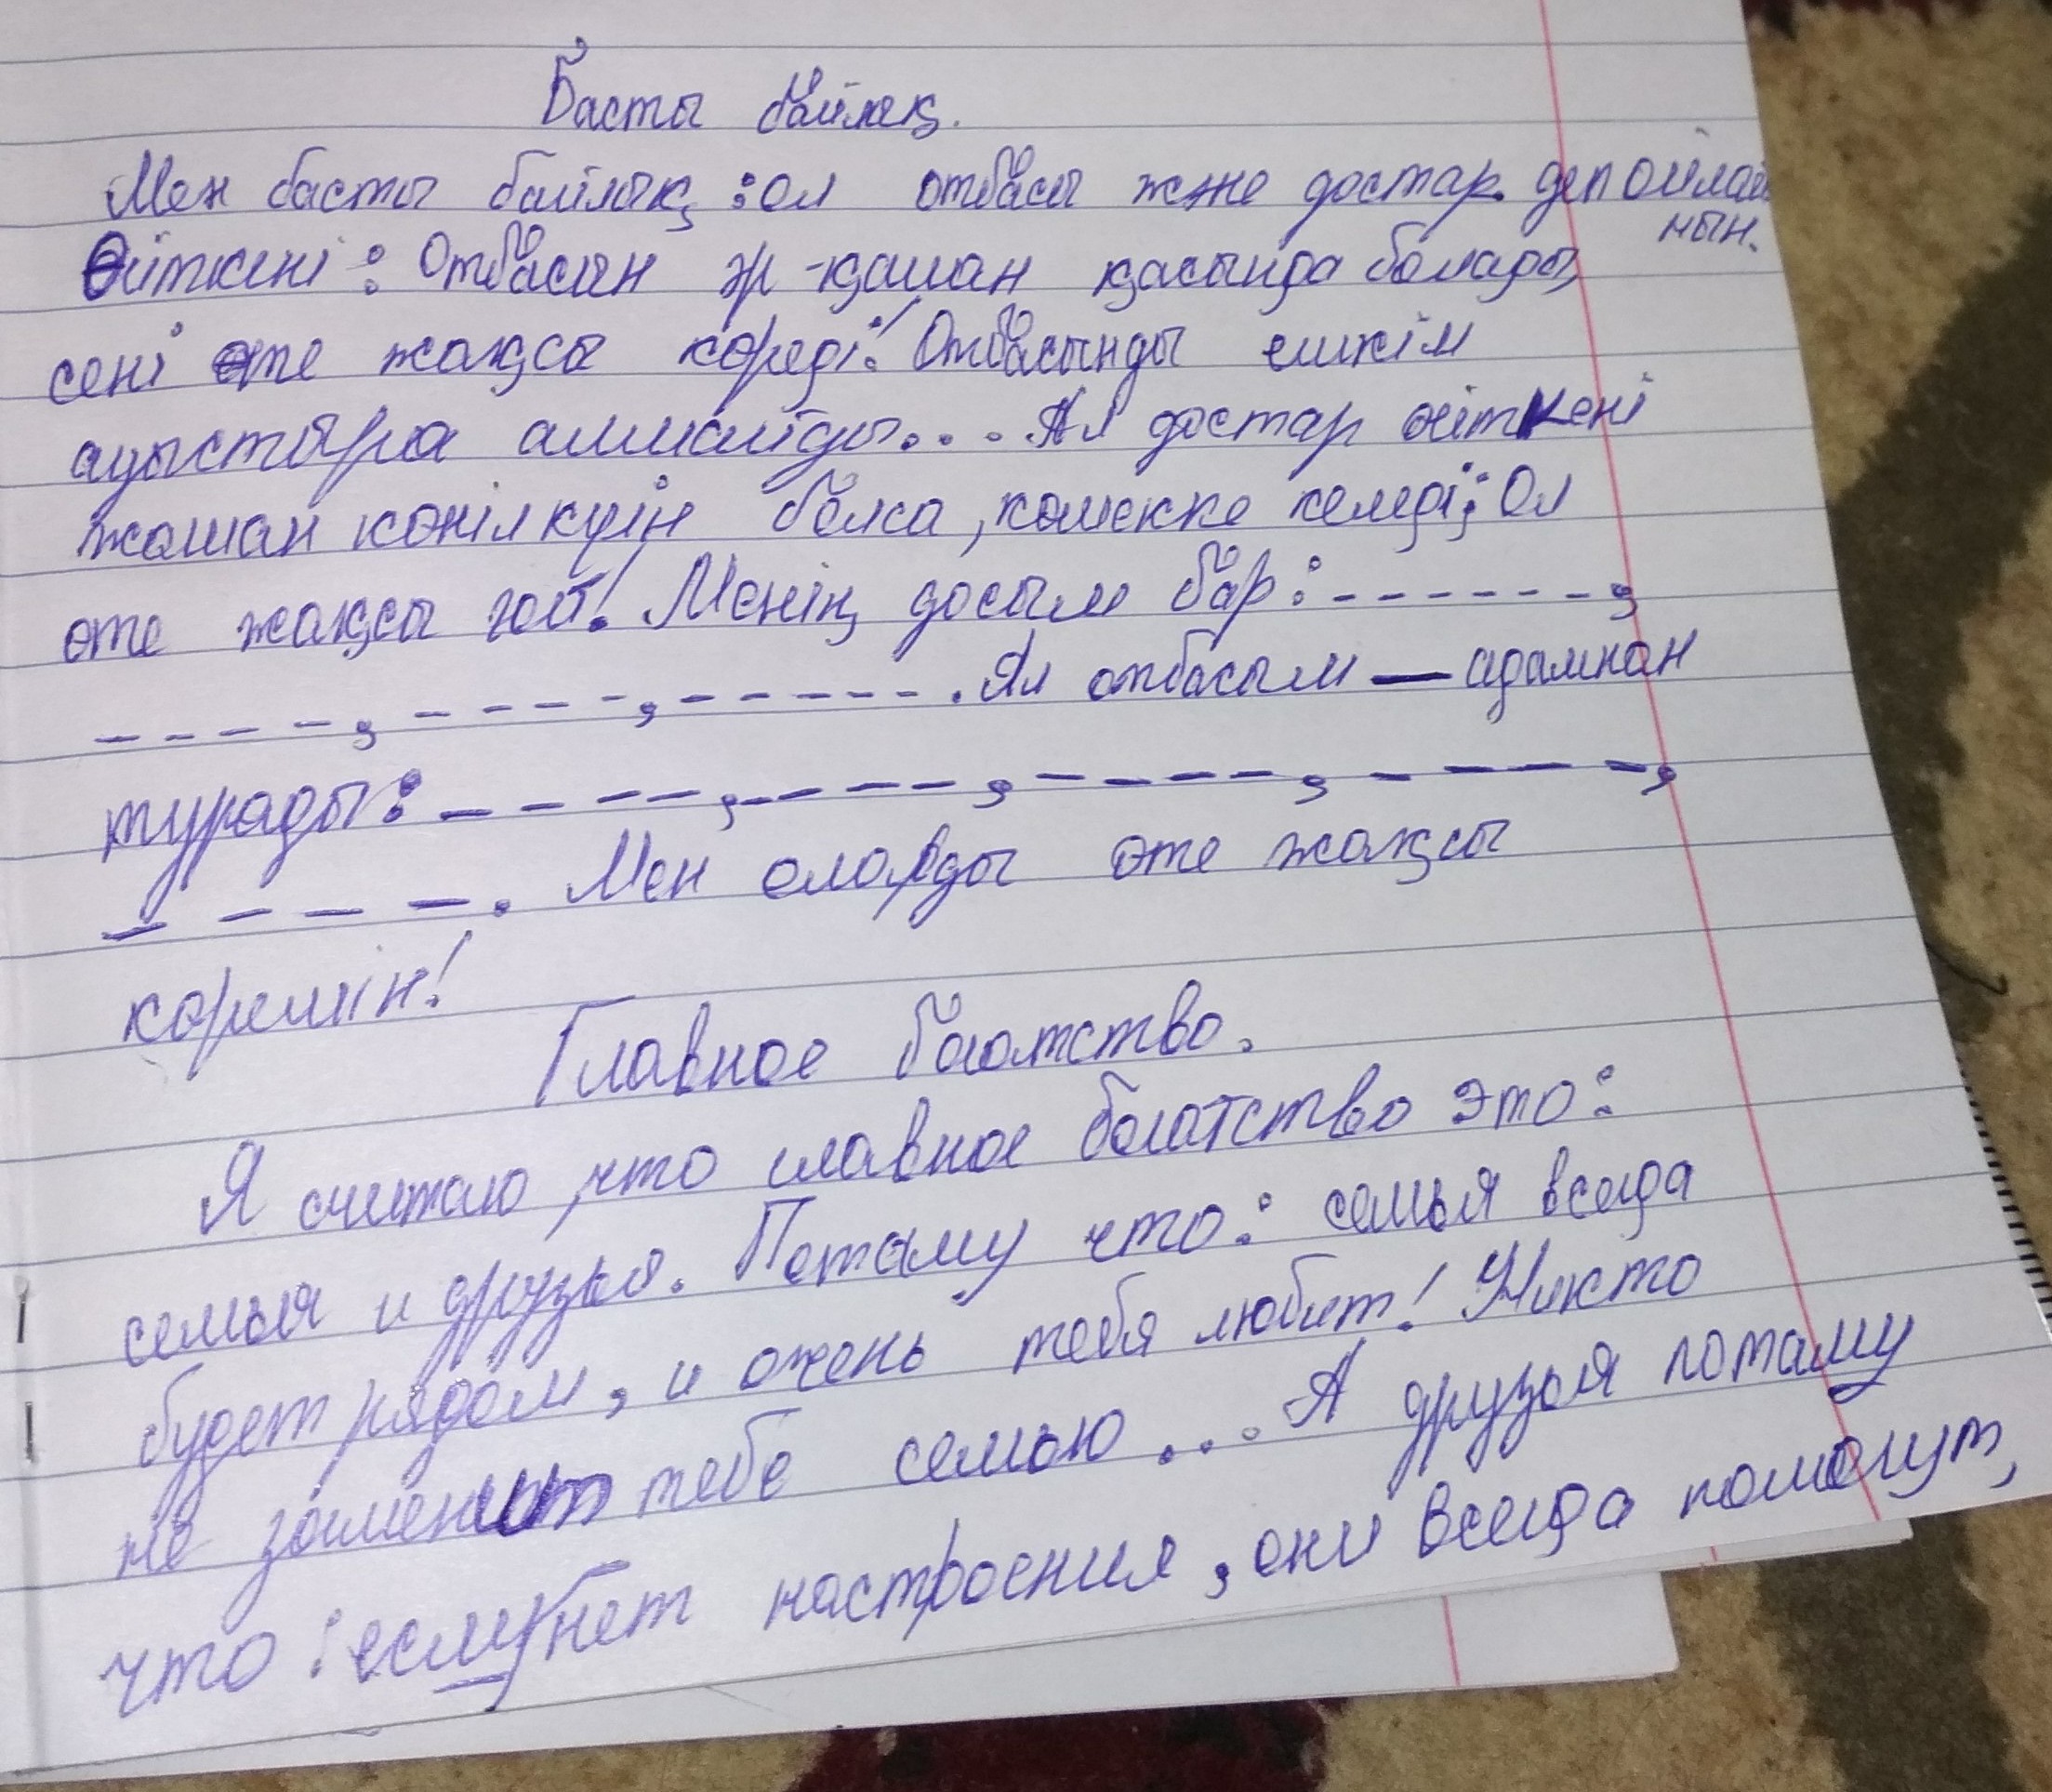 Басты байлық.
Мен басты байлық : ол отбасы және достар деп ойлай
нын.
Өйткені : Отбасын әр-қашан қасында болады,
сені өте жақсы көреді! Отбасынды ешкім
ауыстыра алмайды... Ал достар өйткені
жаман көніл күйін болса, көмекке келеді; Ол
өте жақсы гой! Менің досым бар : - - - - - - - ,
- - - - - , - - - - - , - - - - - - . Ал отбасым — адамнан
турады : - - - - - , - - - - - , - - - - - , - - - - - ,
- - - - - . Мен оларды өте жақсы
көремін!
Главное богатство.
Я считаю, что главное богатство это :
семья и друзья. Потаму что : семья всегда
будет рядом, и очень тебя любит! Никто
не заменит тебе семью ... А друзья потаму
что : если нет настроения, они всегда помогут,